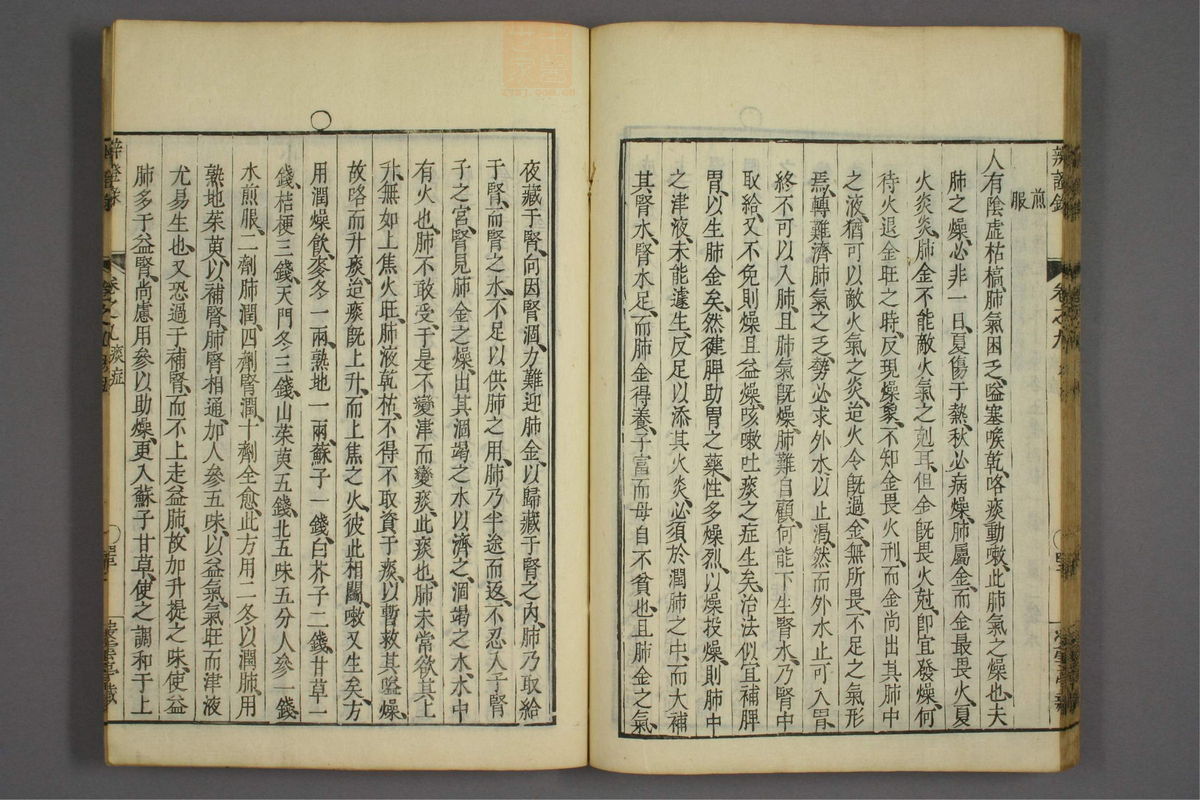 煎服
人有陰虛枯槁肺氣困乏嗌塞喉乾咯痰動嗽此肺氣之燥也夫
肺之燥必非一日夏傷于熱秋必病燥肺屬金而金最畏火夏
火炎炎肺金不能敵火氣之剋耳但金既畏火剋即宜發燥何
待火退金旺之時反現燥象不知金畏火刑而金尚出其肺中
之液猶可以敵火氣之炎迨火令既過金無所畏不足之氣形
焉轉難濟肺氣之乏勢必求外水以止渴然而外水止可入胃
終不可以入肺且肺氣既燥肺難自顧何能下生腎水乃腎中
取給又不免則燥且益燥咳嗽吐痰之症生矣治法似宜補脾
胃以生肺金矣然健脾助胃之藥性多燥烈以燥投燥則肺中
之津液未能遽生反足以添其火炎必須於潤肺之中而大補
其腎水腎水足而肺金得養子富而母自不貧也且肺金之氣
夜藏于腎向因腎涸力難迎肺金以歸藏于腎之內肺乃取給
于腎而腎之水不足以供肺之用肺乃半途而返不忍入于腎
子之宮腎見肺金之燥出其涸竭之水以濟之涸竭之水水中
有火也肺不敢受于是不變津而變痰此痰也肺未常欲其上
升無如上焦火旺肺液乾枯不得不取資于痰以暫救其嗌燥
故咯而升痰迨痰既上升而上焦之火彼此相鬭嗽又生矣方
用潤燥飲麥冬一兩熟地一兩蘇子一錢白芥子二錢甘草一
錢桔梗三錢天門冬三錢山茱萸五錢北五味五分人參一錢
水煎服二劑肺潤四劑腎潤十劑全愈此方用二冬以潤肺用
熟地茱萸以補腎肺腎相通加人參五味以益氣氣旺而津液
尤易生也又恐過于補腎而不上走益肺故加升提之味使益
肺多于益腎尚慮用參以助燥更入蘇子甘草使之調和于上
辨證錄
卷之九
痰症